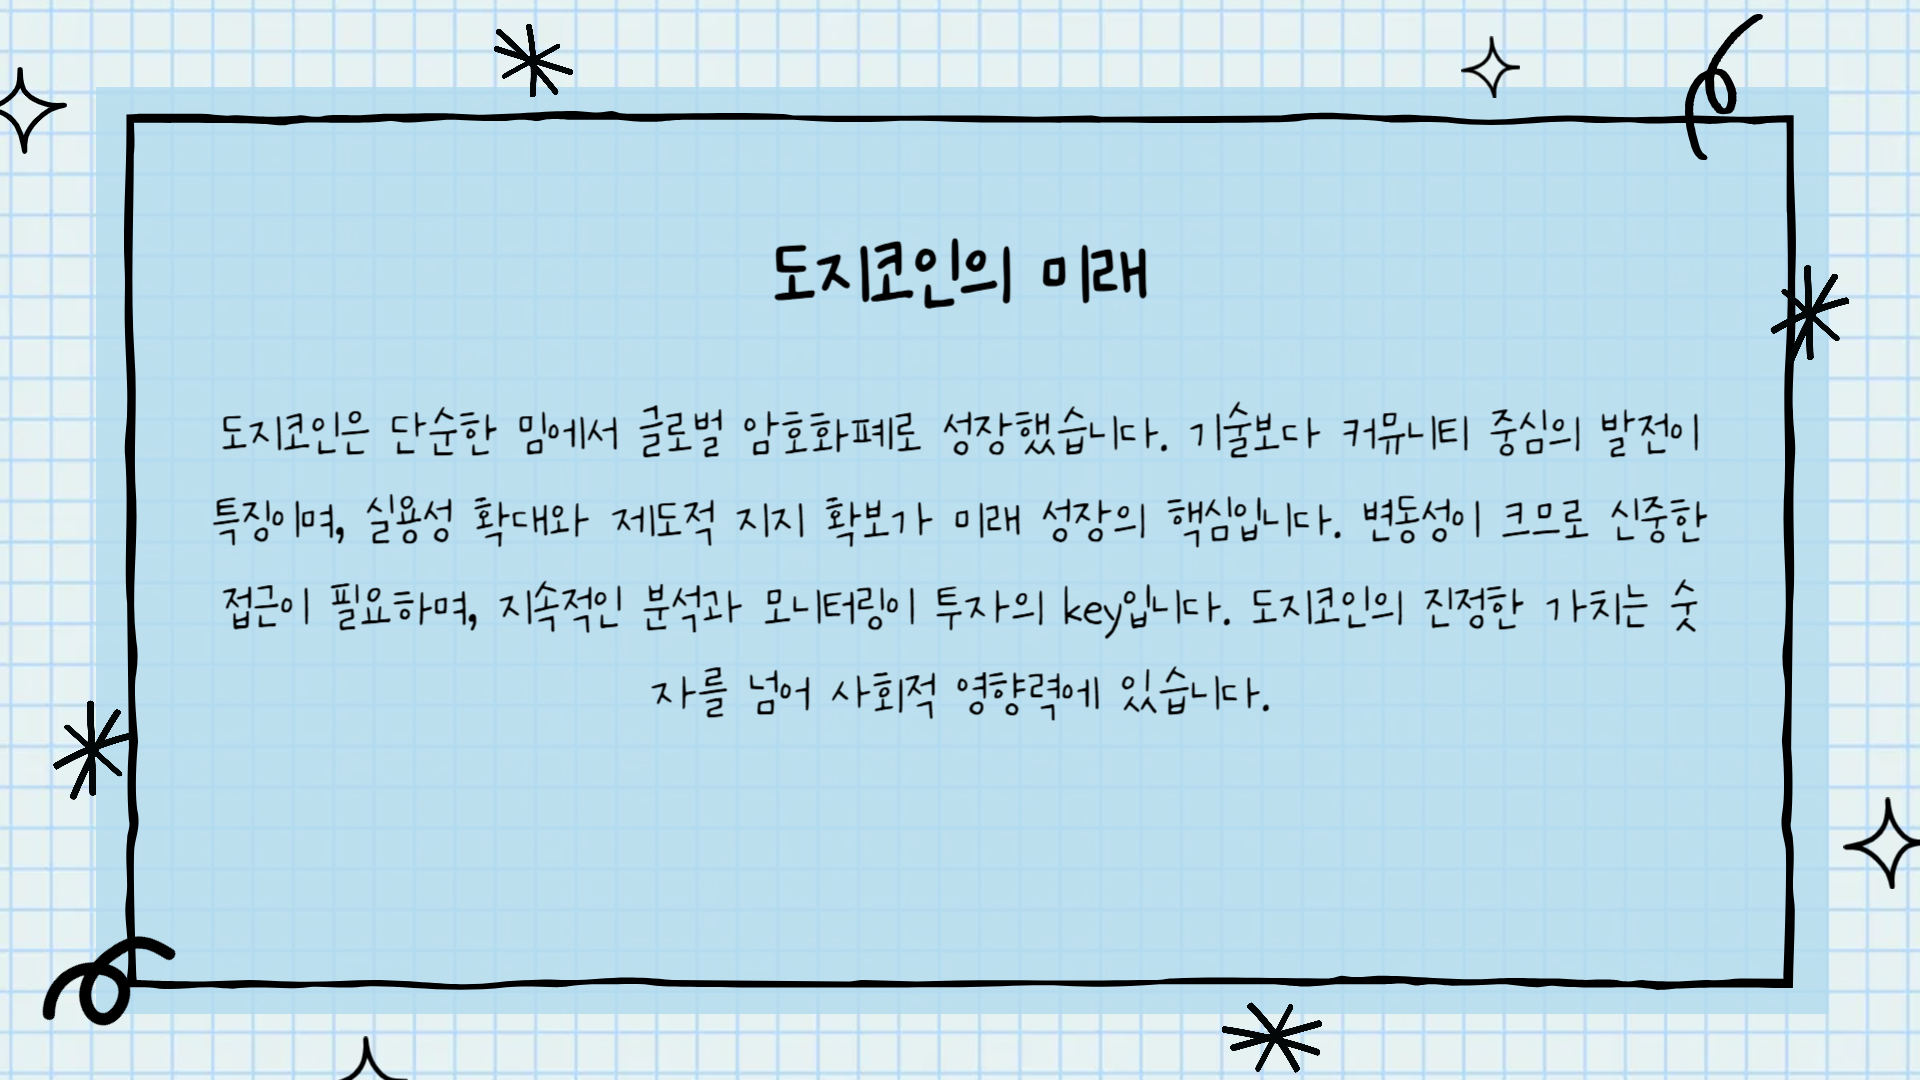 도지코인의 미래
도지코인은 단순한 밈에서 글로벌 암호화폐로 성장했습니다. 기술보다 커뮤니티 중심의 발전이
특징이며, 실용성 확대와 제도적 지지 확보가 미래 성장의 핵심입니다. 변동성이 크므로 신중한
접근이 필요하며, 지속적인 분석과 모니터링이 투자의 key입니다. 도지코인의 진정한 가치는 숫
자를 넘어 사회적 영향력에 있습니다.